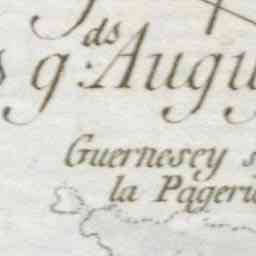 s q.ds Augu
Guernesey s
la Pageri